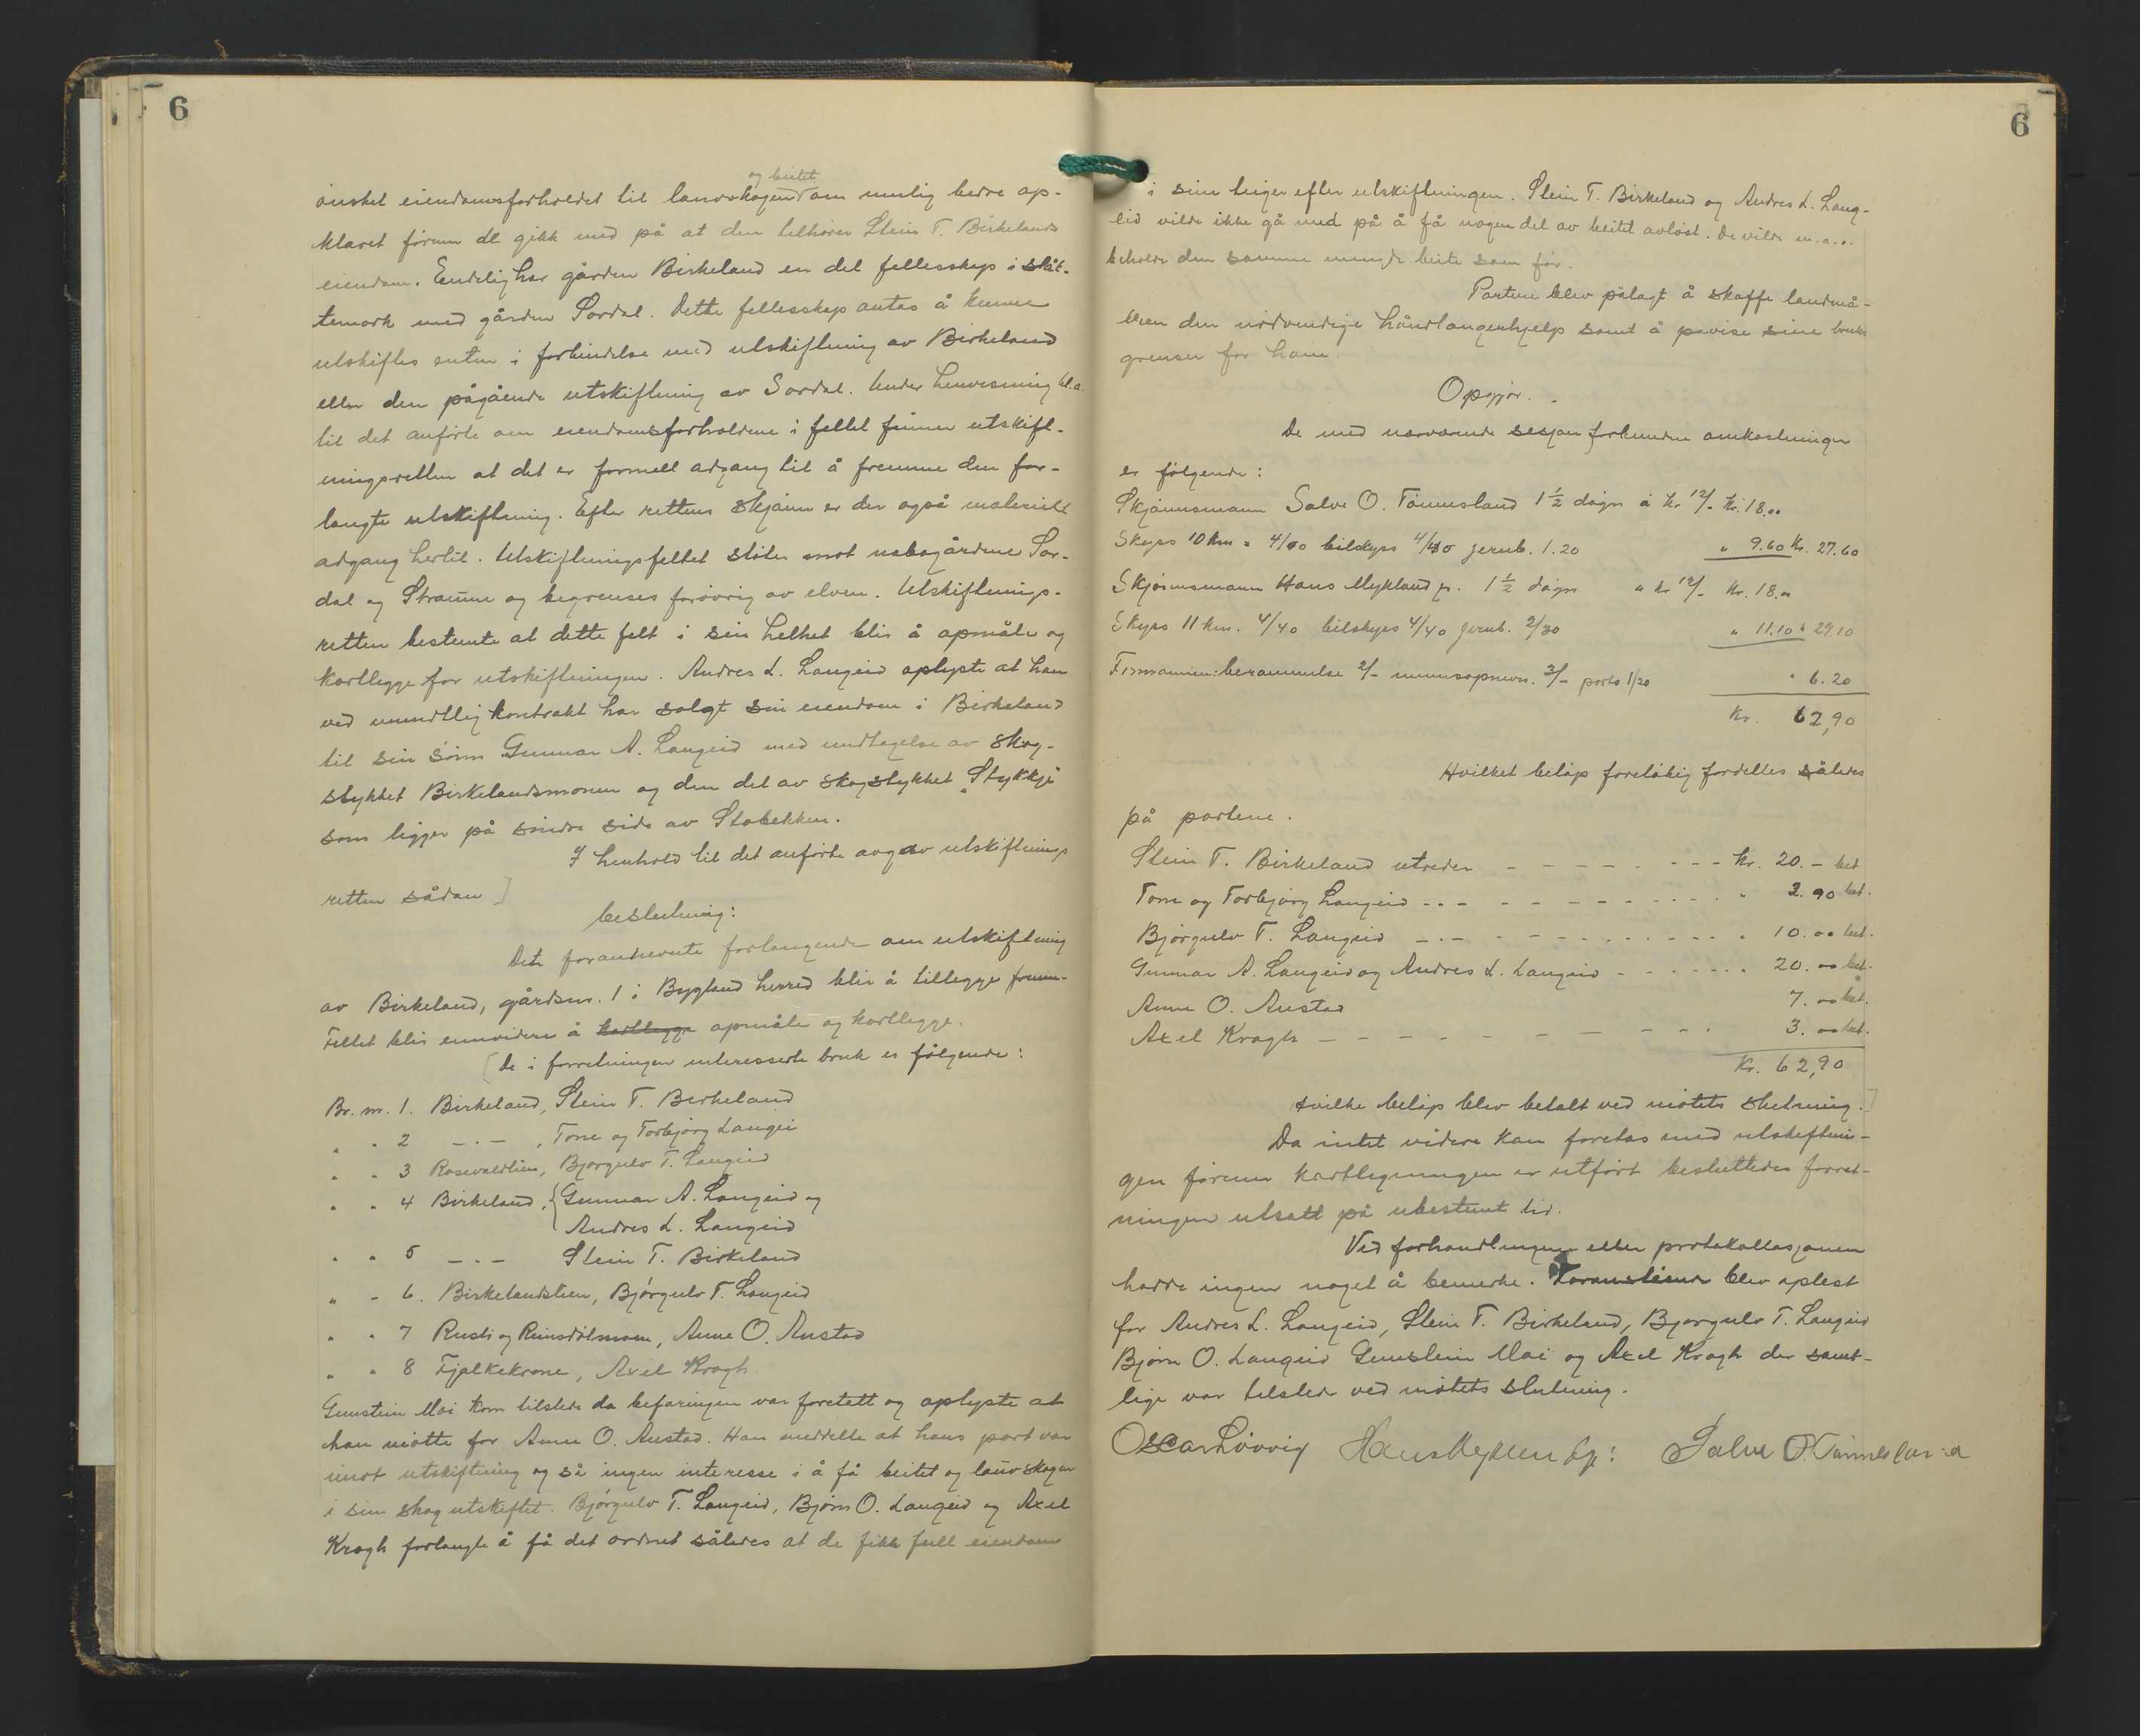 6
og beitet
ønsket eiendomsforholdet til lauvskogen om mulig bedre op-
klaret førenn de gikk med på at den tilhører Stein T. Birkelands
eiendom. Endelig har gården Birkeland en del fellesskap i slåt-
temark med gården Sordal. Dette fellesskap antas å kunne
utskiftes enten i forbindelse med utskiftning av Birkeland
eller den pågående utskiftning av Sordal. Under henvisning bl.a.
til det anførte om eiendomsforholdene i feltet finner utskift-
ningsretten at det er formell adgang til å fremme den for-
langte utskiftning. Efter rettens skjønn er der også materiell
adgang hertil. Utskiftningsfeltet støter mot nabogårdene Sor-
dal og Straume og begrenses forøvrig av elven. Utskiftnings-
retten bestemte at dette felt i sin helhet blir å opmåle og
kartlegge for utskiftningen. Andres L. Langeid oplyste at han
ved mundtlig kontrakt har solgt sin eiendom i Birkeland
til sin sønn Gunnar A. Langeid med undtagelse av skog-
stykket Birkelandsmonen og den del av skogstykket "Stykkje"
som ligger på søndre side av Stobekken.
I henhold til det anførte avgav utskiftnings
retten sådan ]
beslutning:
Det forannevnte forlangende om utskiftning
av Birkeland, gårdsnr. 1 i Bygland herred blir å tillegge frem-
Feltet blir ennvidere å kartlegge opmåle og kartlegge.
[De i forretningen interesserte bruk er følgende:
Br. nr. 1. Birkeland, Stein T. Birkeland
" " 2 -"- , Tone og Torbjørg Langei
" " 3 Rosevaldlien, Bjørgulv T. Langeid
" " 4 Birkeland, { Gunnar A. Langeid og
Andres L. Langeid
" " 5 -"- Stein T. Birkeland
" " 6. Birkelandslien, Bjørgulv T. Langeid
" " 7 Rusti og Reinsdølsmoen, Anne O. Austad
" " 8 Fjalkekrone, Axel Kragh.
Gunstein Moi kom tilstede da befaringen var foretatt og oplyste at
han møtte for Anne O. Austad. Han meddelte at hans part var
imot utskiftning og så ingen interesse i å få beitet og lauvskogen
i sin skog utskiftet. Bjørgulv T. Langeid, Bjørn O. Langeid og Axel
Kragh forlangte å få det ordnet således at de fikk full eiendom
6
i sine teiger efter utskiftningen. Stein T. Birkeland og Andres L. Lang-
eid vilde ikke gå med på å få nogen del av beitet avløst. De vilde m.a.o.
beholde den samme mengde beite som før.
Partene blev pålagt å skaffe landmå-
leren den nødvendige håndlangerhjelp samt å påvise sine bruks
grenser for ham.
Opgjør.
De med nærværende sesjon forbundne omkostninger
er følgende:
Skjønnsmann Salve O. Tønnesland 1½ døgn à kr. 12/- Kr. 18.00
Skyss 10 km. à 4/00 bilskyss 4/40 jernb. 1.20 " 9.60 Kr. 27.60
Skjønnsmann Hans Mykland jr. 1½ døgn à kr 12/- Kr. 18.00
Skyss 11 km. 4/40 bilskyss 4/40 jernb. 2/30 " 11.10 " 29.10
Formannen: berammelse 2/- mannsopnevn. 3/- porto 1/20 " 6.20
Kr. 62,90
Hvilket beløp foreløbig fordeltes således
på partene.
Stein T. Birkeland utreder - - - - - - - Kr. 20.- bet
Tone og Torbjørg Langeid - - - - - - - " 2.90 bet.
Bjørgulv T. Langeid - - - - - - - " 10.00 bet.
Gunnar A. Langeid og Andres L. Langeid - - - - - " 20.00 bet.
Anne O. Austad 7.00 bet.
Axel Kragh - - - - - - - 3.00 bet.
Kr. 62,90
Hvilke beløp blev betalt ved møtets slutning.]
Da intet videre kan foretas med utskiftnin-
gen førenn kartlegningen er utført besluttedes forret-
ningen utsatt på ubestemt tid.
Ved forhandlingene eller protokollasjonen
hadde ingen noget å bemerke. Foranstående blev oplest
for Andres L. Langeid, Stein T. Birkeland, Bjørgulv T. Langeid
Bjørn O. Langeid Gunstein Moi og Axel Kragh der samt-
lige var tilstede ved møtets slutning.
Oscar Løvvig Hans Myklen jr: Salve O. Tønnesland